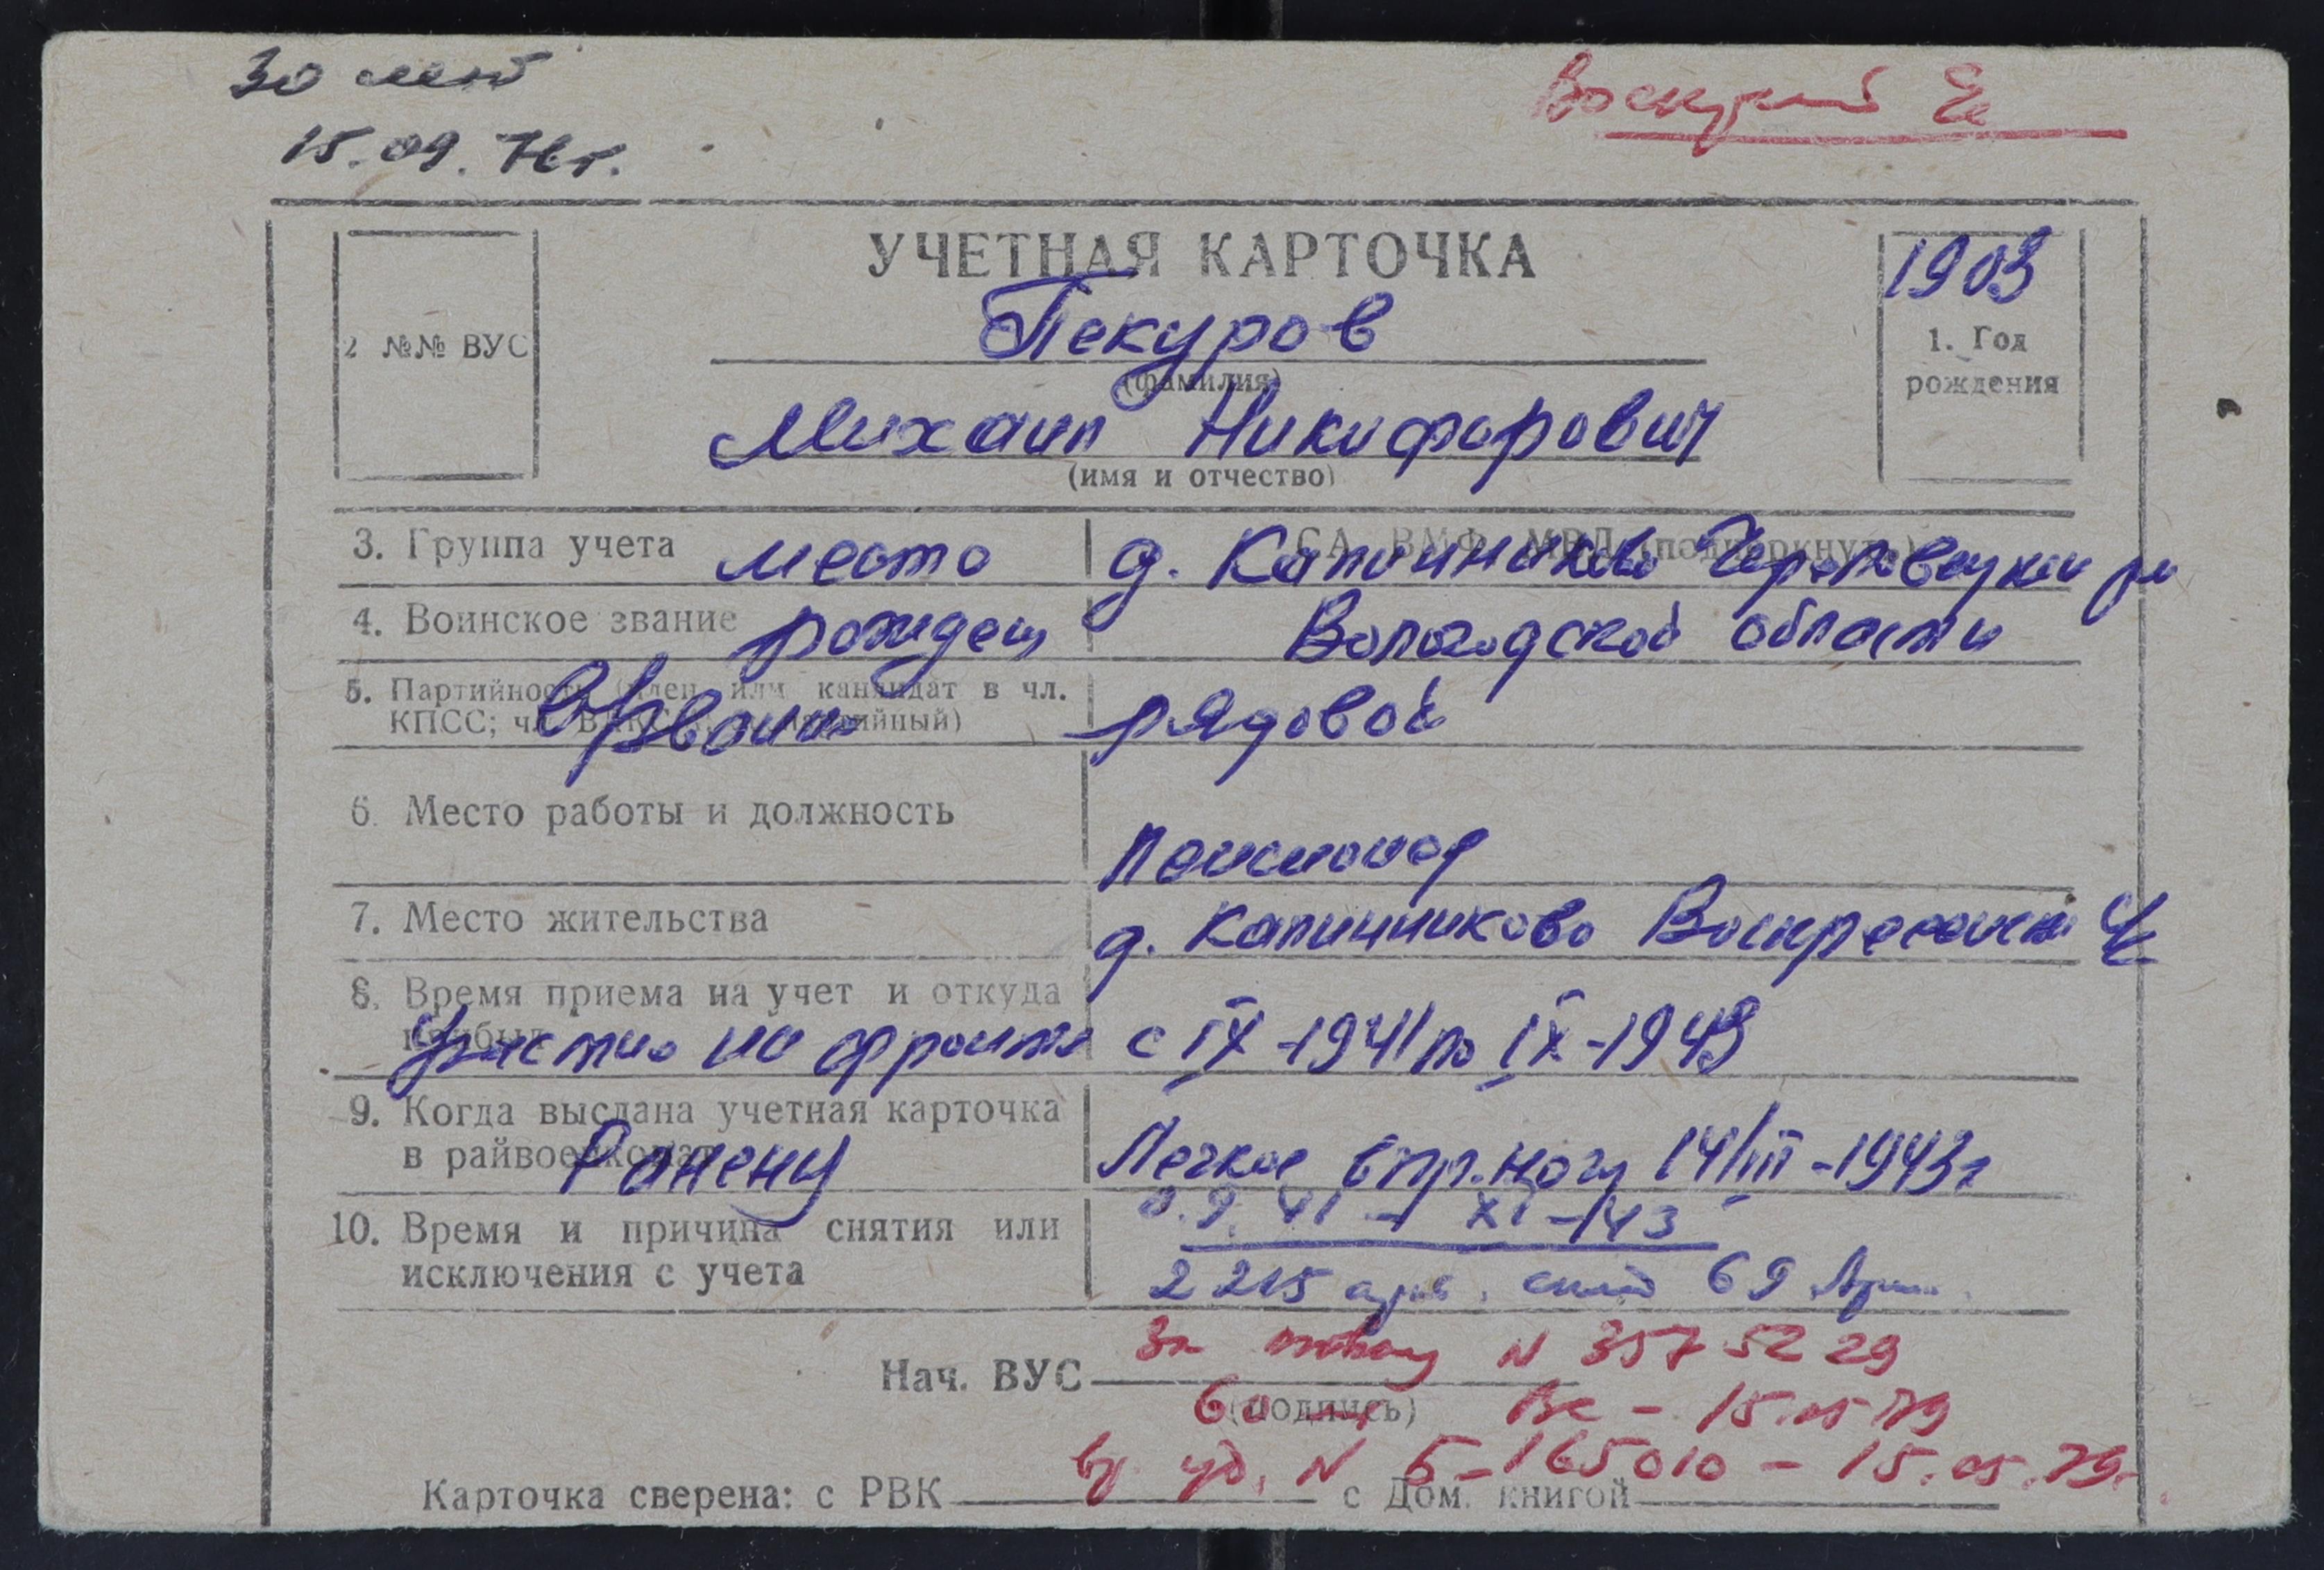 30 лет
15.09.76г.
УЧЕТНАЯ КАРТОЧКА
2 №№ ВУС
1903
1. Год
рождения
Пекуров
(фамилия)
Михаил Никифорович
(имя и отчество)
3. Группа учета место д. Калинниково Череповецкий
4. Воинское звание рожден Вологодской области
5. Партийность (член или кандидат в чл.
КПСС; чл. ВЛКСМ; беспартийный) В/звание рядовой
6. Место работы и должность
Пенсионер
7. Место жительства д. Калинниково Воскресенск
8. Время приема на учет и откуда
прибыл Участие на фронте с IX-1941 по IX-1943
9. Когда выслана учетная карточка
в райвоенкомат Ранены Легкое в пр. ногу 14/III-1943г
10. Время и причина снятия или
исключения с учета
9. 41 - XI-43
2215 арт. склад 69 Арм.
N 357 52 29
Нач. ВУС
(подпись)
60 лет ВС - 15.05.79
уд. N Б-165010 - 15.05.79.
Карточка сверена: с РВК с Дом. книгой